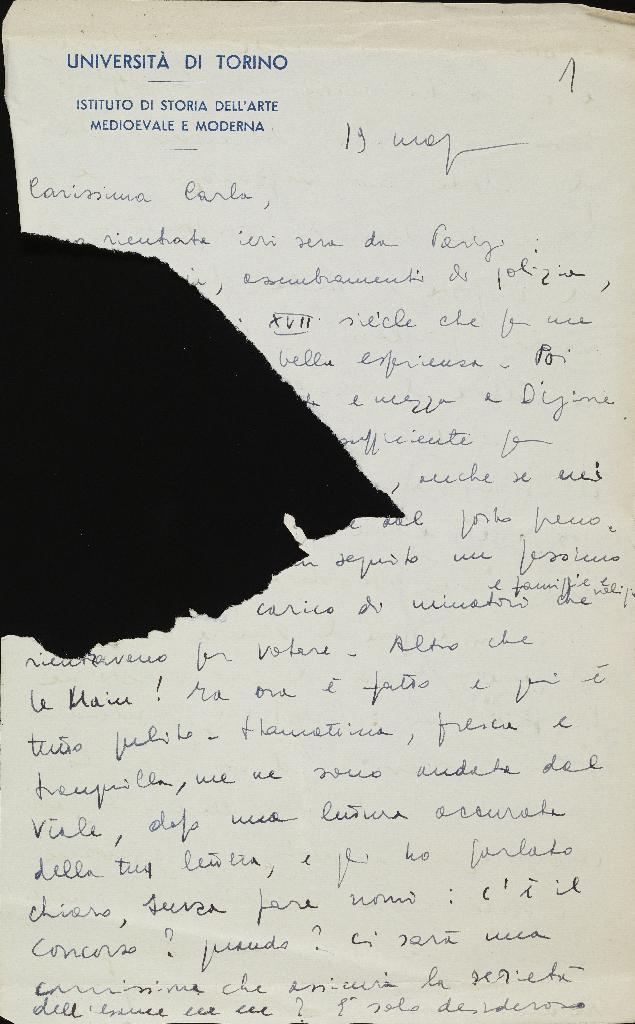 UNIVERSITÀ DI TORINO
ISTITUTO DI STORIA DELL'ARTE
MEDIOEVALE E MODERNA
1
19 mag
Carissima Carla,
rientrata ieri sera da Parigi:
assembramenti di polizia,
XVII siècle che per me
bella esperienza - Poi
e mezza a Digione
sufficiente per
, anche se
e dal posto
in seguito un pessimo
e famiglie e
carico di minatori che
rientravano per votare - Altro che
le Main! Ma ora è fatto e qui è
tutto pulito - Stamattina, fresca e
tranquilla, me ne sono andata dal
Viale, dopo una lettura accurata
della tua lettera, e gli ho parlato
chiaro, senza fare nomi: c'è il
concorso? quando? ci sarà una
commissione che assicura la serietà
dell'esame ? È solo desideroso